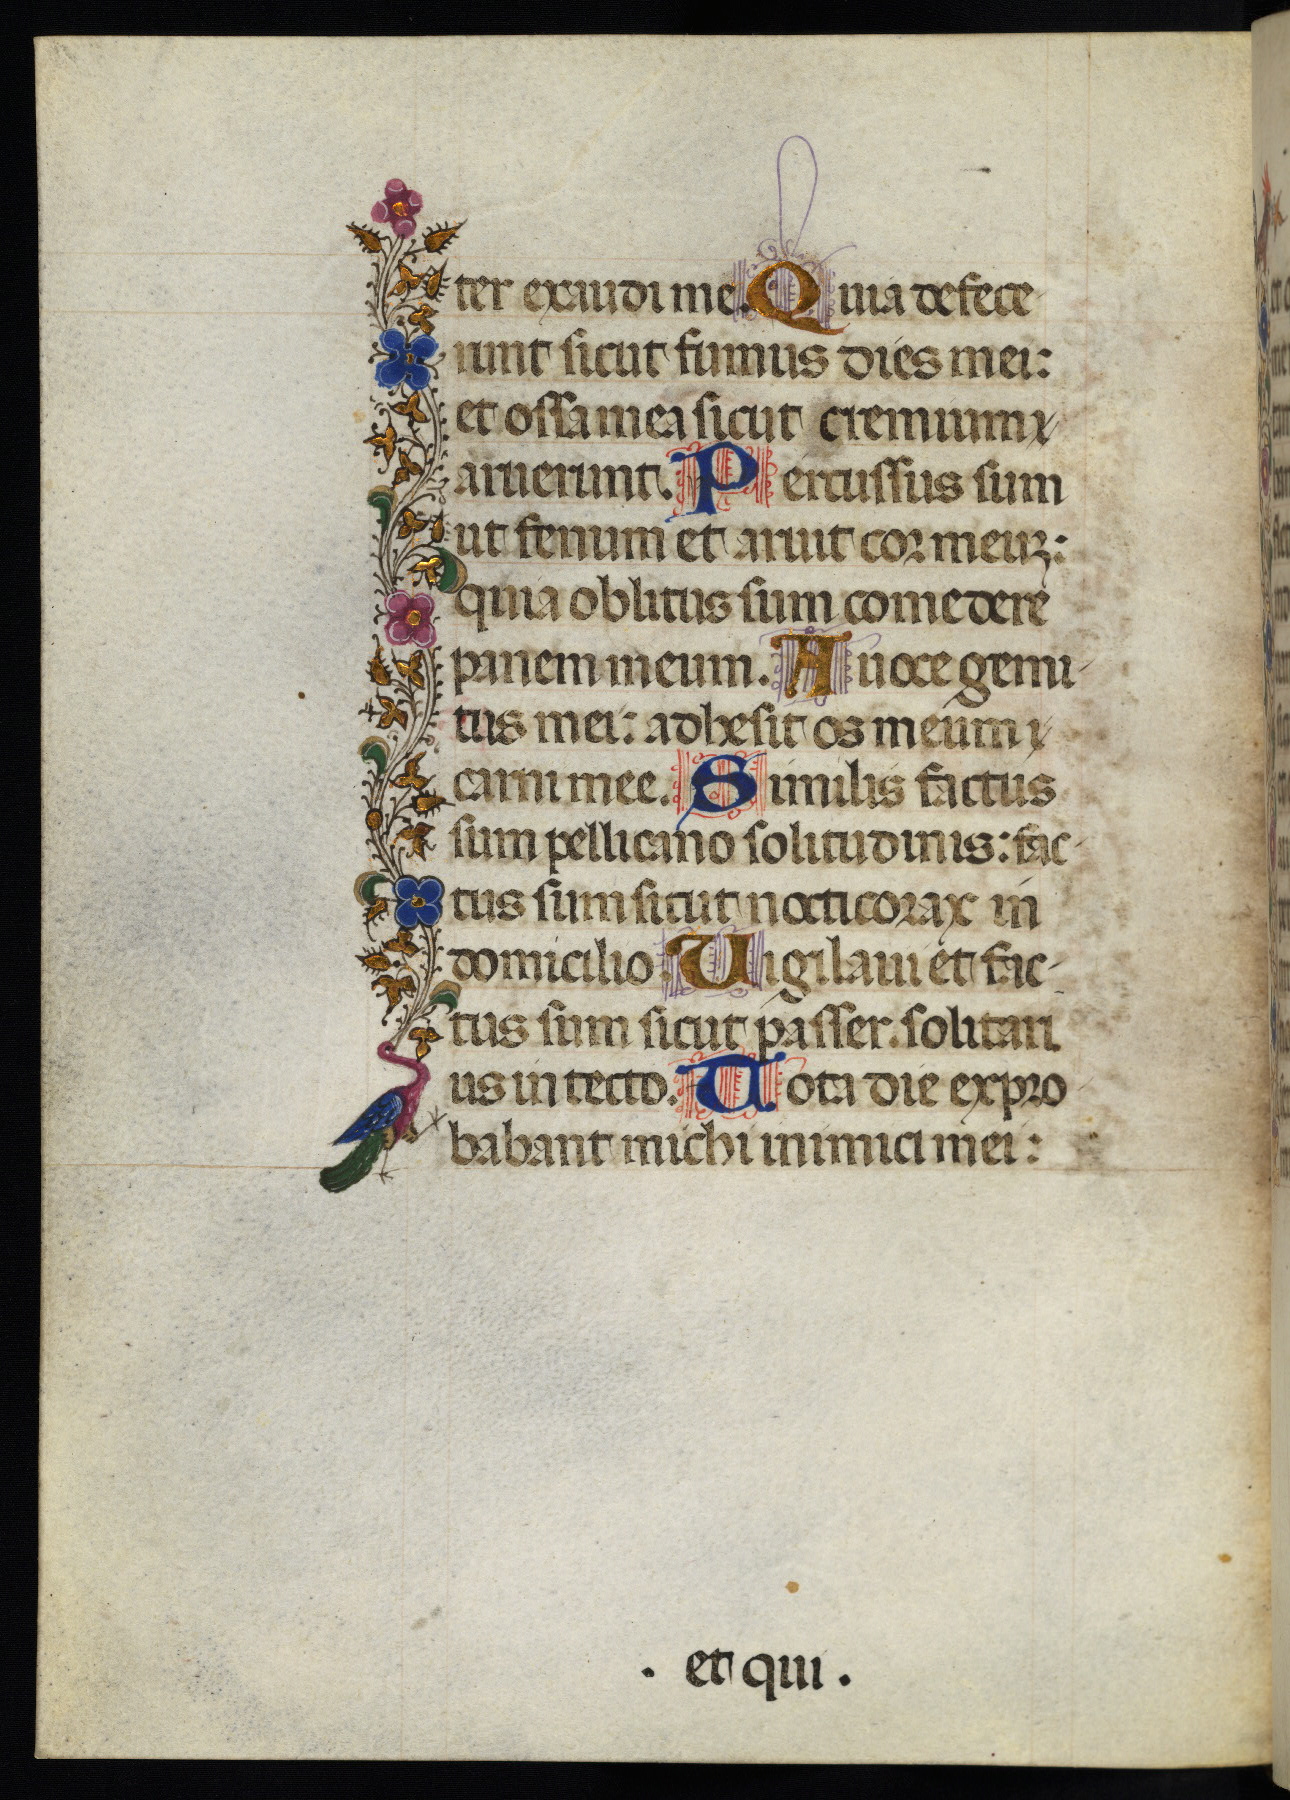 ter exaudi me. Quia defece
runt sicut fumus dies mei:
et ossa mea sicut cremium
aruerunt. Percussus sum
ut fenum et aruit cor meuꝫ:
quia oblitus sum comedere
panem meum. A uoce gemi-
tus mei: adhesit os meum
carni mee. Similis factus
sum pellicano solitudinis: fac-
tus sum sicut nocticorax in
domicilio. Uigilaui et fac-
tus sum sicut passer. solitari
us in tecto. Tota die expro
babant michi inimici mei:
. et qui .